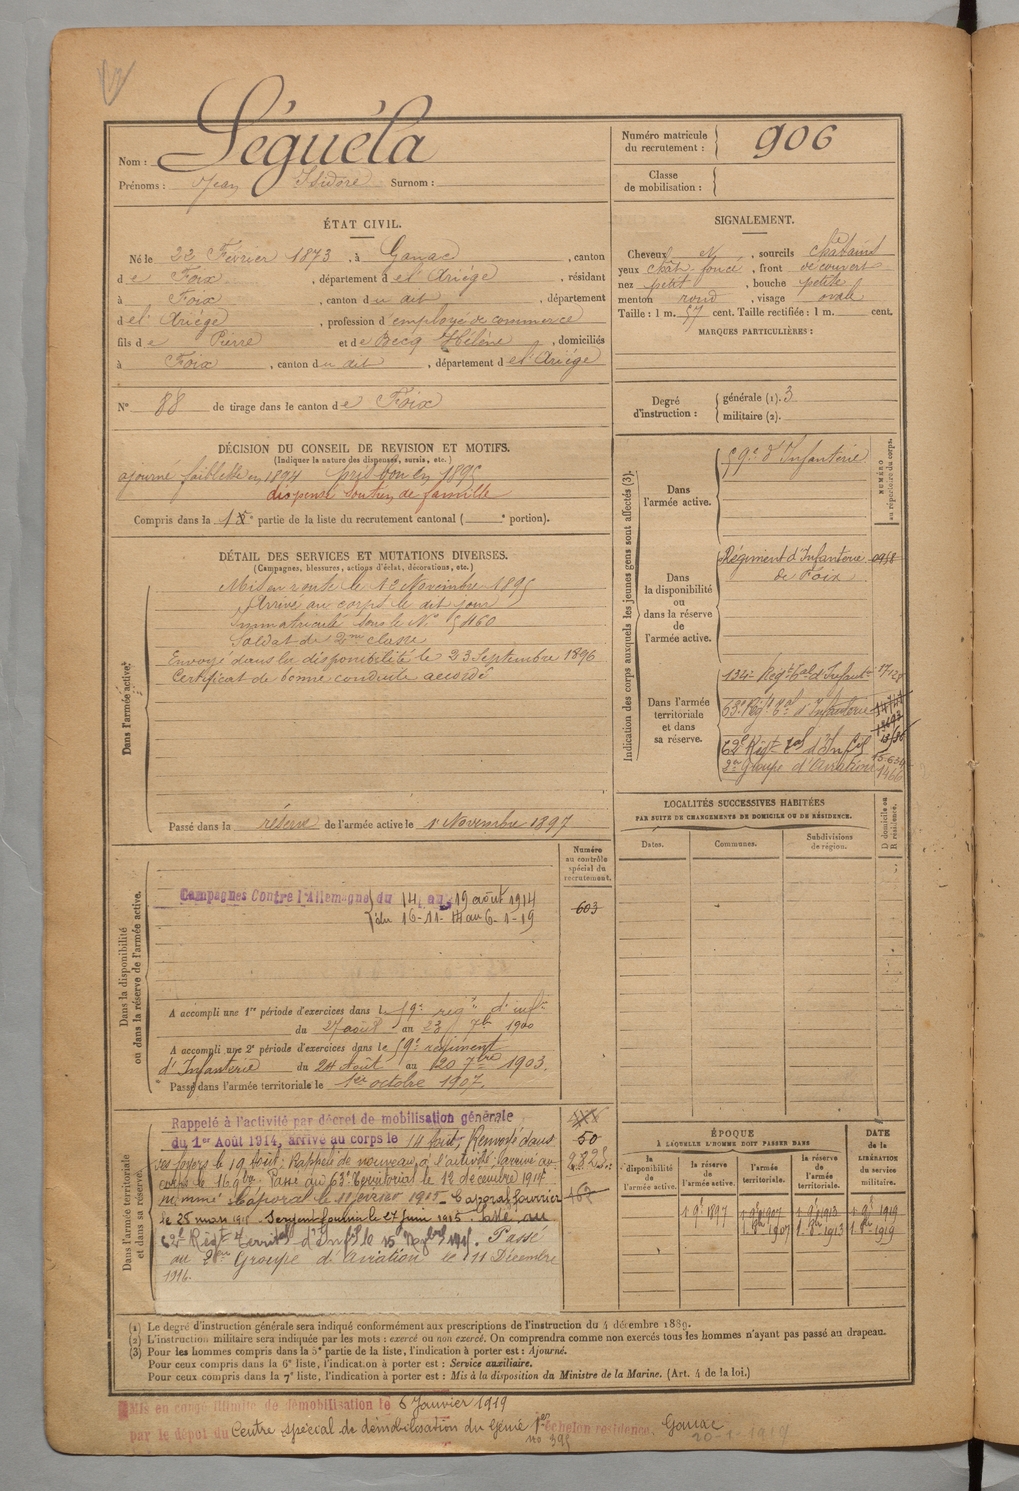 Nom : Séguéla
Prénoms : Jean Isidore Surnom :
Numéro matricule du recrutement : 906
Classe de mobilisation :
ÉTAT CIVIL.
Né le 22 Février 1873, à Ganac, canton
de Foix, département de l'Ariège, résidant
à Foix, canton du dit, département
de l'Ariège, profession d'employé de commerce
fils de Pierre et de Becq Hélène, domiciliés
à Foix, canton du dit, département de l'Ariège
N° 88 de tirage dans le canton de Foix
SIGNALEMENT.
Cheveux et, sourcils châtains
yeux chât. foncé, front découvert
nez petit, bouche petite
menton rond, visage ovale
Taille : 1 m. 57 cent. Taille rectifiée : 1 m. cent.
MARQUES PARTICULIÈRES :
Degré d'instruction :
générale (1). 3
militaire (2).
DÉCISION DU CONSEIL DE REVISION ET MOTIFS.
(Indiquer la nature des dispenses, sursis, etc.)
ajourné faiblesse en 1894 pris bon en 1895
dispensé soutien de famille
Compris dans la 1e partie de la liste du recrutement cantonal ( e portion).
DÉTAIL DES SERVICES ET MUTATIONS DIVERSES.
(Campagnes, blessures, actions d'éclat, décorations, etc.)
Dans l'armée active.
Mis en route le 12 Novembre 1895
Arrivé au corps le dit jour
Immatriculé sous le N° 5460
Soldat de 2me classe
Envoyé dans la disponibilité le 23 Septembre 1896
Certificat de bonne conduite accordé
Passé dans la réserve de l'armée active le 1r Novembre 1897
Indication des corps auxquels les jeunes gens sont affectés (3).
NUMÉRO au répertoire du corps.
Dans l'armée active.
59e d'Infanterie
Dans la disponibilité ou dans la réserve de l'armée active.
Régiment d'Infanterie de Foix 0958
Dans l'armée territoriale et dans sa réserve.
134e Regt tal d'Infante
63e Régt tal d'Infanterie
62e Régt tal d'Infie
2e Groupe d'Aviation
LOCALITÉS SUCCESSIVES HABITÉES
PAR SUITE DE CHANGEMENTS DE DOMICILE OU DE RÉSIDENCE.
D domicile ou R résidence.
Dates. Communes. Subdivisions de région.
Dans la disponibilité ou dans la réserve de l'armée active.
Numéro au contrôle spécial du recrutement.
603
Campagnes Contre l'Allemagne du 14 au 19 août 1914
du 16-11-14 au 6-1-19
A accompli une 1re période d'exercices dans le 59e regt d'inft
du 27 août au 23 7bre 1900
A accompli une 2e période d'exercices dans le 59e régiment
d'Infanterie du 24 Août au 20 7bre 1903.
Passé dans l'armée territoriale le 1er octobre 1907.
Dans l'armée territoriale et dans sa réserve.
Rappelé à l'activité par décret de mobilisation générale
du 1er Août 1914, arrivé au corps le 14 Août, Renvoyé dans
ses foyers le 19 Août; Rappelé de nouveau à l'activité; arrivé au
corps le 16 9bre. Passé au 63e territorial le 12 décembre 1914
nommé Caporal le 11 février 1915 - Caporal fourrier
le 25 mars 1915. Sergent fourrier le 27 juin 1915. Passé au
62e Régt Territal d'Infie le 15 Passé
au 2me Groupe de aviation le 11 Décembre
1916.
50
ÉPOQUE
À LAQUELLE L'HOMME DOIT PASSER DANS
DATE de la LIBÉRATION du service militaire.
la disponibilité de l'armée active. la réserve de l'armée active. l'armée territoriale. la réserve de l'armée territoriale.
1 9e 1897 1 9e 1907 1 9e 1913 1 9e 1919
1. 8bre 1907 1. 8bre 1913 1. 8bre 1919
(1) Le degré d'instruction générale sera indiqué conformément aux prescriptions de l'instruction du 4 décembre 1889.
(2) L'instruction militaire sera indiquée par les mots : exercé ou non exercé. On comprendra comme non exercés tous les hommes n'ayant pas passé au drapeau.
(3) Pour les hommes compris dans la 5e partie de la liste, l'indication à porter est : Ajourné.
Pour ceux compris dans la 6e liste, l'indication à porter est : Service auxiliaire.
Pour ceux compris dans la 7e liste, l'indication à porter est : Mis à la disposition du Ministre de la Marine. (Art. 4 de la loi.)
Mis en congé illimité de démobilisation le 6 Janvier 1919
par le dépôt du Centre spécial de démobilisation du Génie 1er échelon résidence, Ganac
no 395 20-1-1919